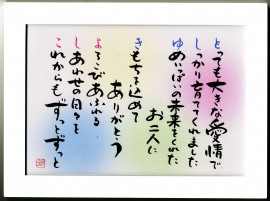 とっても大きな愛情で
しっかり育ててくれました
ゆめいっぱいの未来をくれた
お二人に
きもちを込めて
ありがとう
よろこびあふれる
しあわせの日々を
これからもずっとずっと